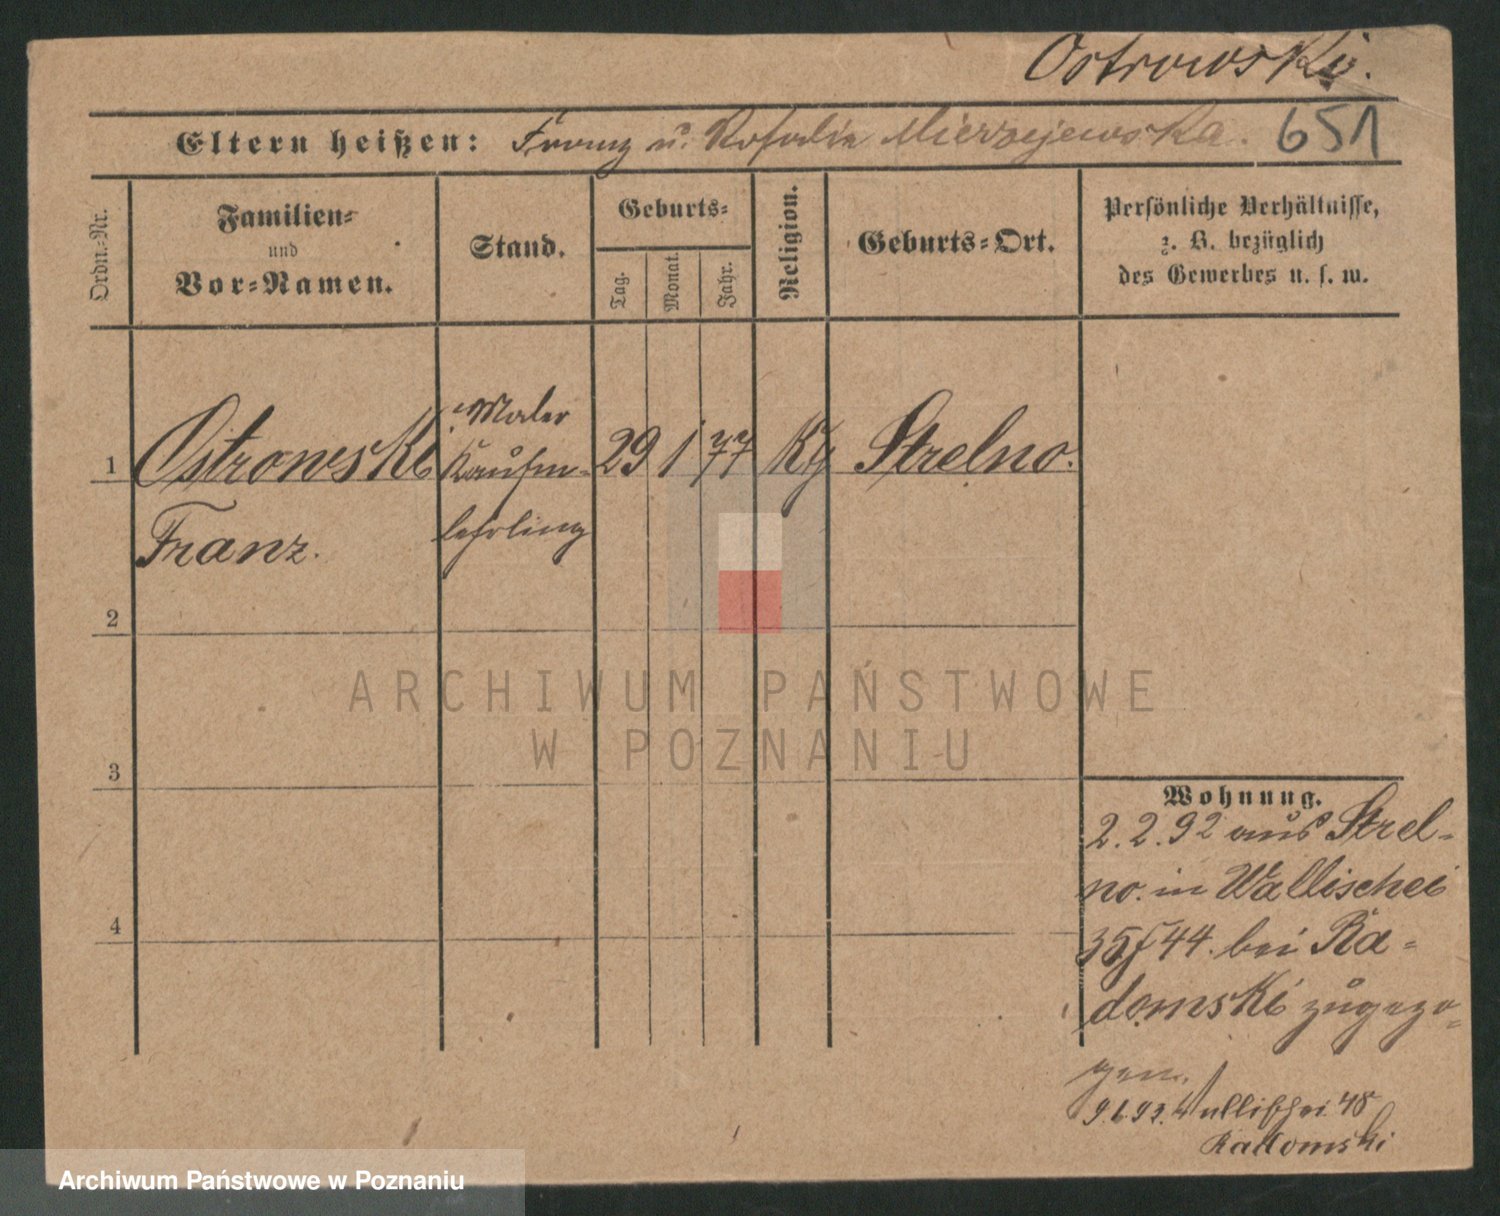 Ostrowski.
Eltern heißen: Franz u. Rosalia Mierzejewska. 651
Ordn.-Nr.
Familien-
und
Vor-Namen.
Stand.
Geburts-
Tag.
Monat.
Jahr.
Religion.
Geburts-Ort.
Persönliche Verhältnisse,
z. B. bezüglich
des Gewerbes u. s. w.
Maler
1 Ostrowski Kaufm- 29 1 77 Kg Strelno.
Franz. lehrling
2
3
4
Wohnung.
2.2.92 aus Strel-
no. in Wallischei
44. bei Ra-
domski zugezo-
gen.
9.6.93. Wallischei 48
Radomski
ARCHIWUM PAŃSTWOWE
W POZNANIU
Archiwum Państwowe w Poznaniu